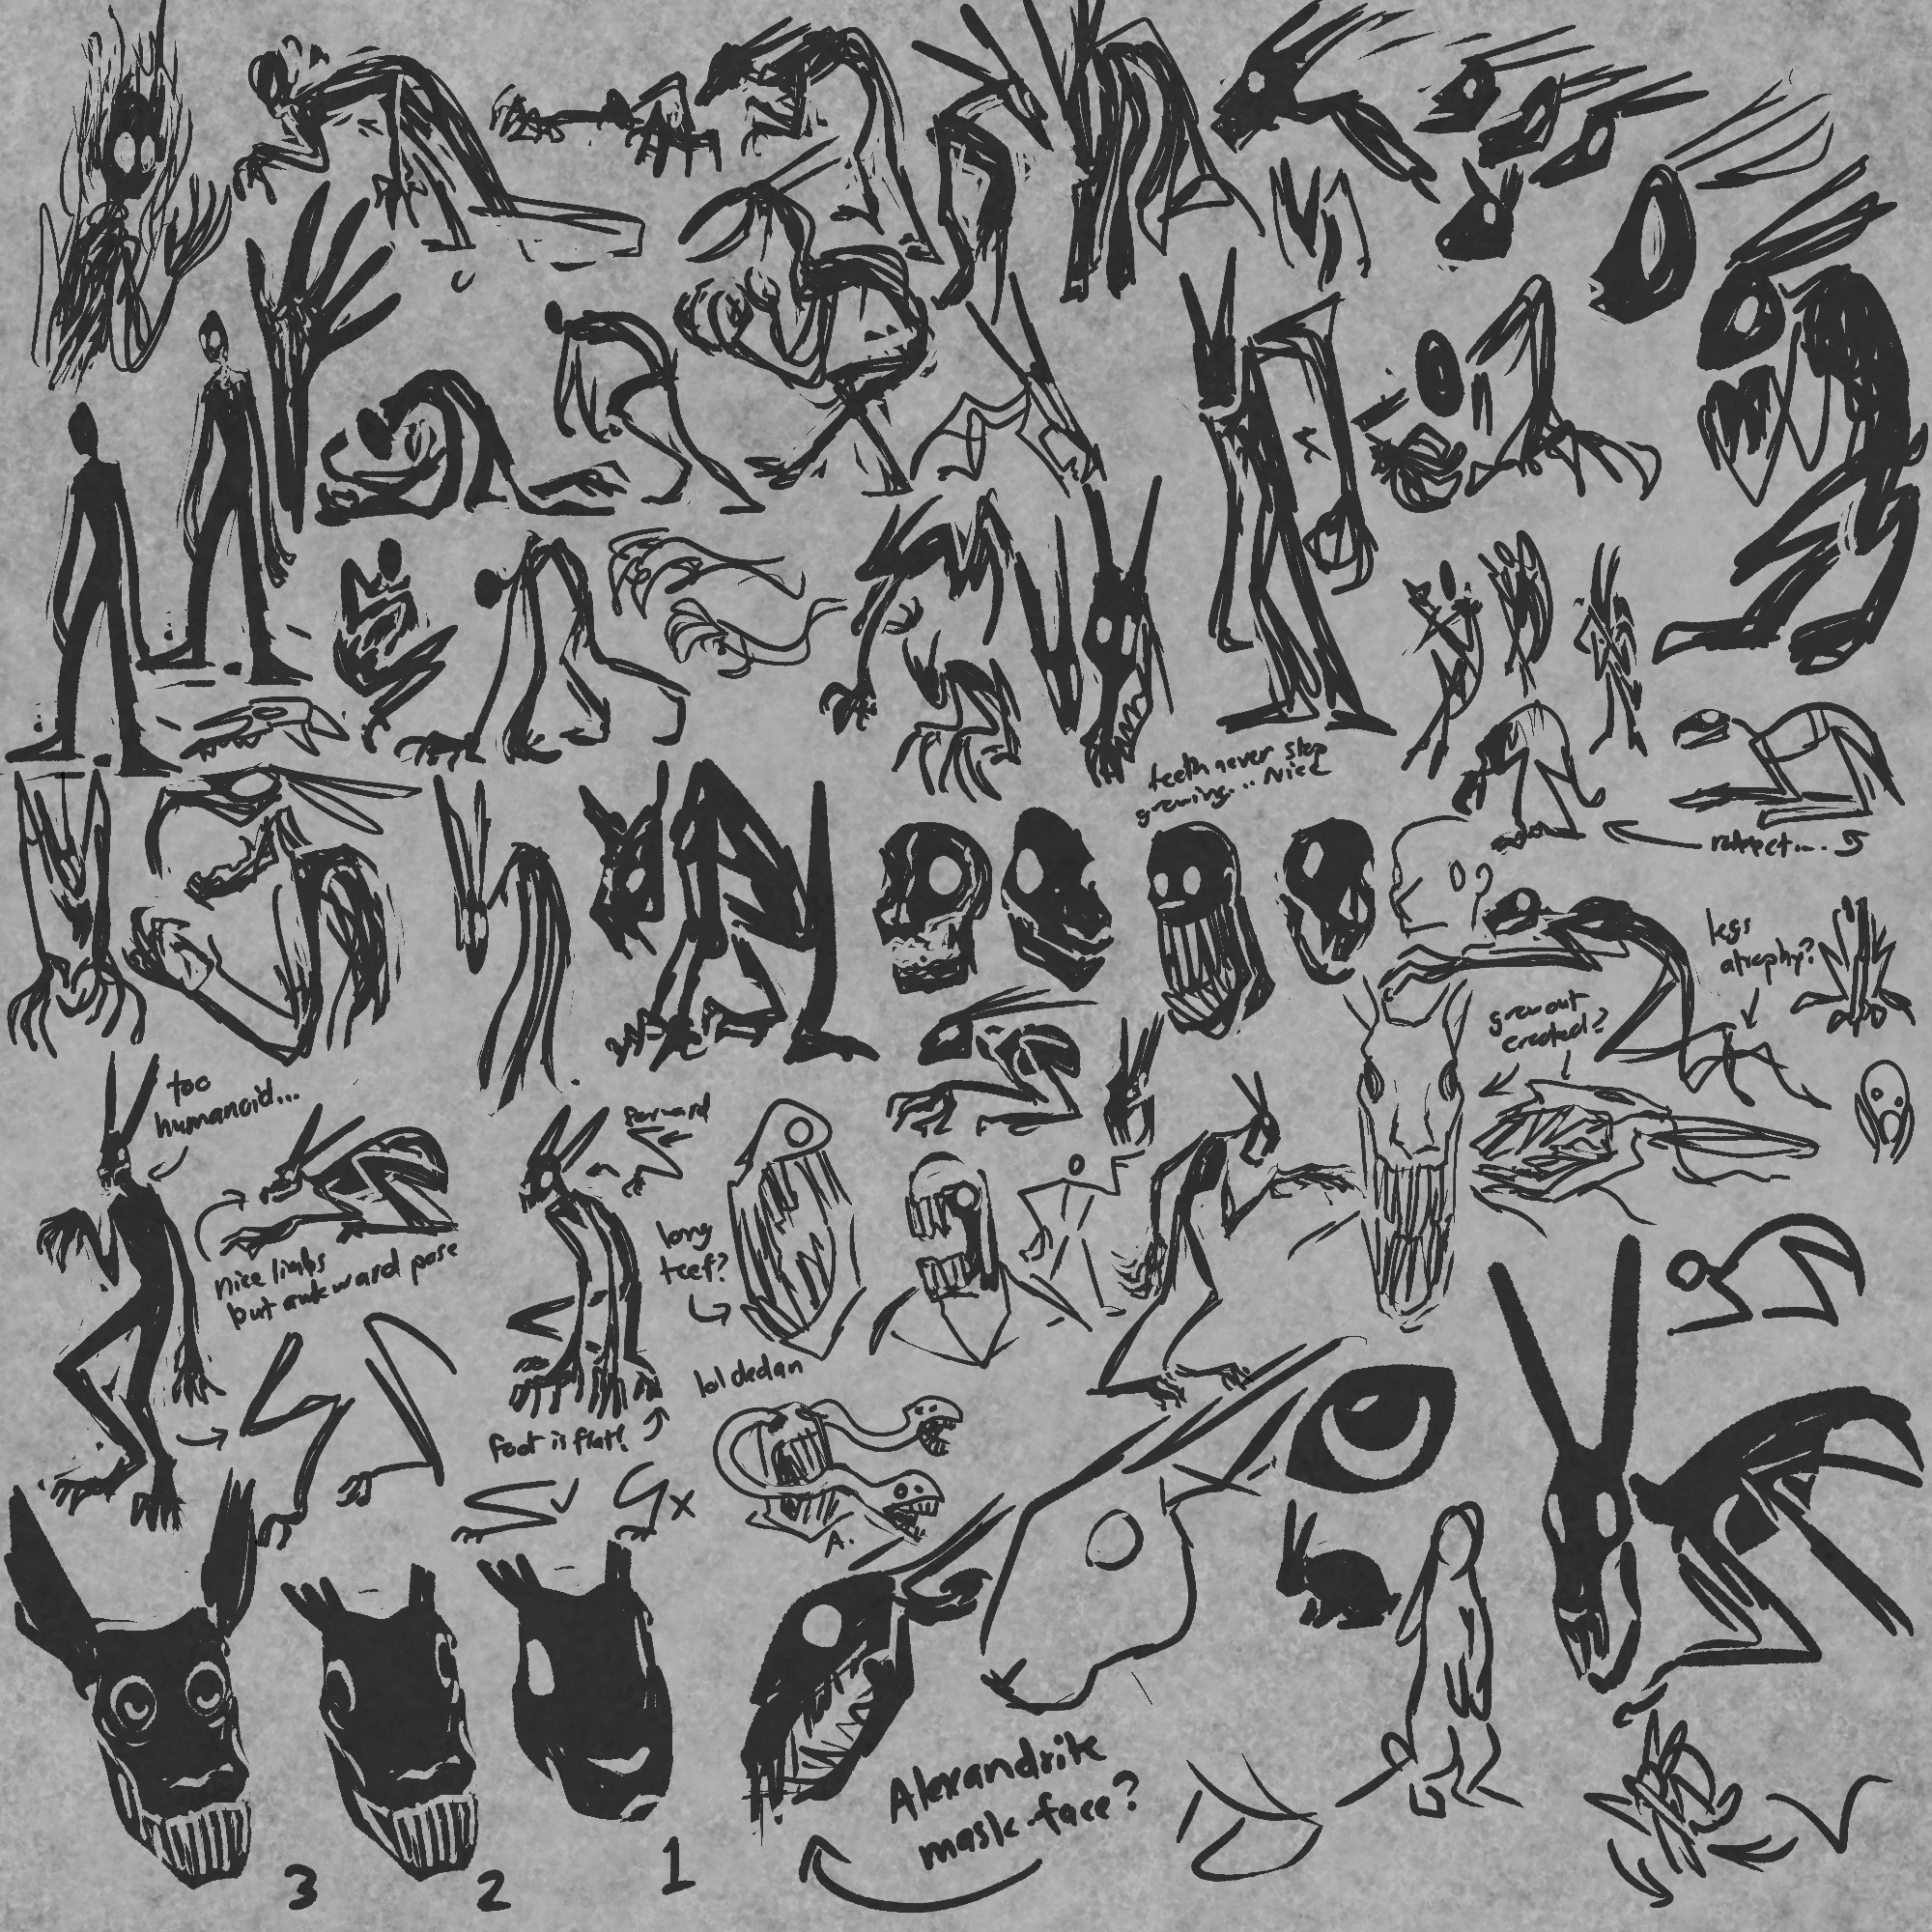 teeth never stop
growing... Nice
legs
atrophy?
grow out
crested?
too
humanoid...
forward
nice limbs
but awkward pose
long
teef?
lol dedan
foot is flat!
x
A.
Alexandrite
mask-face?
3
2
1